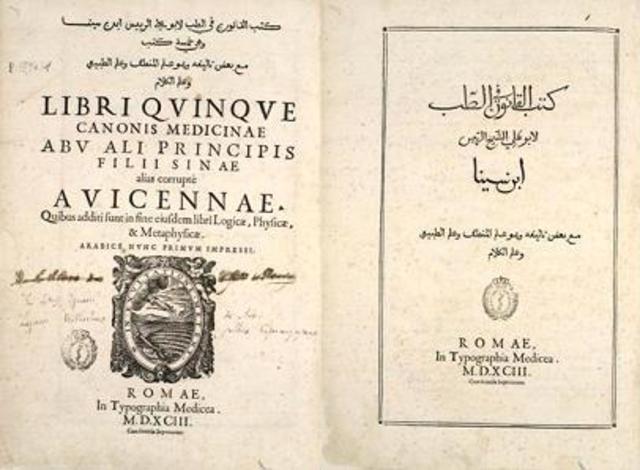 كتب القانون في الطب لابو علي الشيخ الرئيس ابن سينا
وهو خمسة كتب
مع بعض تاليفه وهو علم المنطق وعلم الطبيعي
وعلم الكلام
LIBRI QVINQVE
CANONIS MEDICINAE
ABV ALI PRINCIPIS
FILII SINAE
alias corruptè
AVICENNAE.
Quibus additi sunt in fine eiusdem libri Logicæ, Physicæ,
& Metaphysicæ.
ARABICE NVNC PRIMVM IMPRESSI.
ROMAE,
In Typographia Medicea.
M.D.XCIII.
كتب القانون في الطب
لابو علي الشيخ الرئيس
ابن سينا
مع بعض تاليفه وهو علم المنطق وعلم الطبيعي
وعلم الكلام
ROMAE,
In Typographia Medicea.
M.D.XCIII.